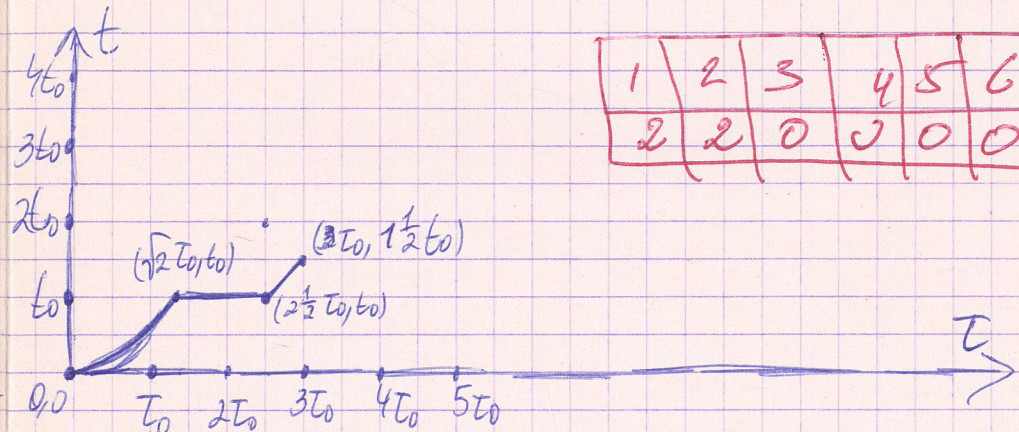 t
4t₀
3t₀
2t₀
t₀
(√2 τ₀, t₀)
(3τ₀, 1½ t₀)
(2½ τ₀, t₀)
τ
0,0 τ₀ 2τ₀ 3τ₀ 4τ₀ 5τ₀
1 2 3 4 5 6
2 2 0 0 0 0